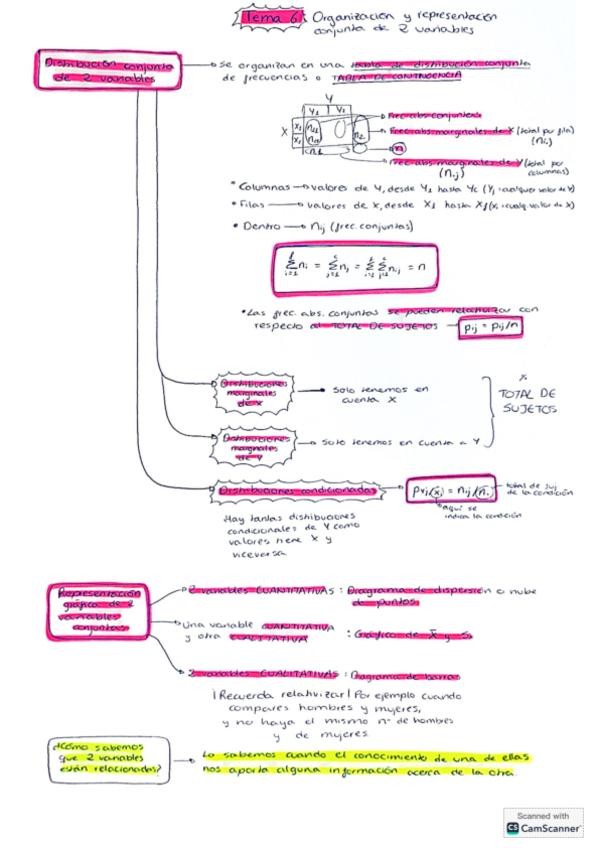 Tema 6: Organización y representación
conjunta de 2 variables
Distribución conjunta
de 2 variables
Se organizan en una tabla de distribución conjunta
de frecuencias o TABLA DE CONTINGENCIA
Y
Y1 Y2
X
Frec abs conjuntas
Frec abs marginales de X (total por fila)
(ni.)
n
Frec abs marginales de Y (total por
columnas)
(n.j)
• Columnas → valores de Y, desde Y1 hasta Yc (Yj: cualquier valor de Y)
• Filas → valores de X, desde X1 hasta Xf (Xi: cualq. valor de X)
• Dentro → nij (frec. conjuntas)
• Las frec. abs. conjuntas se pueden relativizar con
respecto al TOTAL DE SUJETOS → pij = pij/n
Distribuciones
marginales
de X
→ Solo tenemos en
cuenta X
TOTAL DE
SUJETOS
Distribuciones
marginales
de Y
→ Solo tenemos en cuenta a Y
Distribuciones condicionadas
total de suj
de la condición
aquí se
indica la condición
Hay tantas distribuciones
condicionales de Y como
valores tiene X y
viceversa
Representación
gráfica de 2
variables
conjuntas
2 variables CUANTITATIVAS: Diagrama de dispersión o nube
de puntos
Una variable CUANTITATIVA
y otra CUALITATIVA
: Gráfico de X̄ y S
2 variables CUALITATIVAS: Diagrama de barras
¡Recuerda relativizar! Por ejemplo cuando
compares hombres y mujeres,
y no haya el mismo nº de hombres
y de mujeres
¿Cómo sabemos
que 2 variables
están relacionadas?
Lo sabemos cuando el conocimiento de una de ellas
nos aporta alguna información acerca de la otra.
Scanned with
CS CamScanner